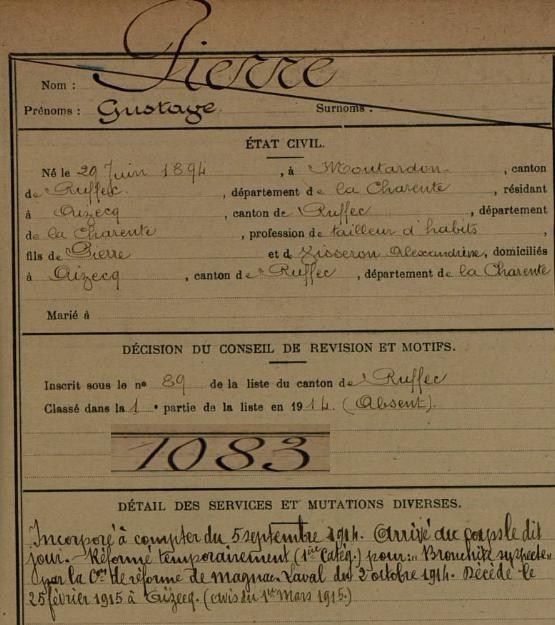 Nom : Pierre
Prénoms : Gustave Surnoms :
ÉTAT CIVIL.
Né le 29 Juin 1894, à Moutardon, canton
de Ruffec, département de la Charente, résidant
à Aizecq, canton de Ruffec, département
de la Charente, profession de tailleur d'habits
fils de Pierre et de Zisseron Alexandrine, domiciliés
à Aizecq, canton de Ruffec, département de la Charente
Marié à
DÉCISION DU CONSEIL DE REVISION ET MOTIFS.
Inscrit sous le nº 89 de la liste du canton de Ruffec
Classé dans la 1e partie de la liste en 1914. (Absent).
1083
DÉTAIL DES SERVICES ET MUTATIONS DIVERSES.
Incorporé à compter du 5 septembre 1914. Arrivé au corps le dit
jour. Réformé temporairement (1ère Catég.) pour : "Bronchite suspecte"
par la Com de réforme de Magnac-Laval du 2 octobre 1914. Décédé le
25 février 1915 à Aizecq. (avis du 1er Mars 1915)